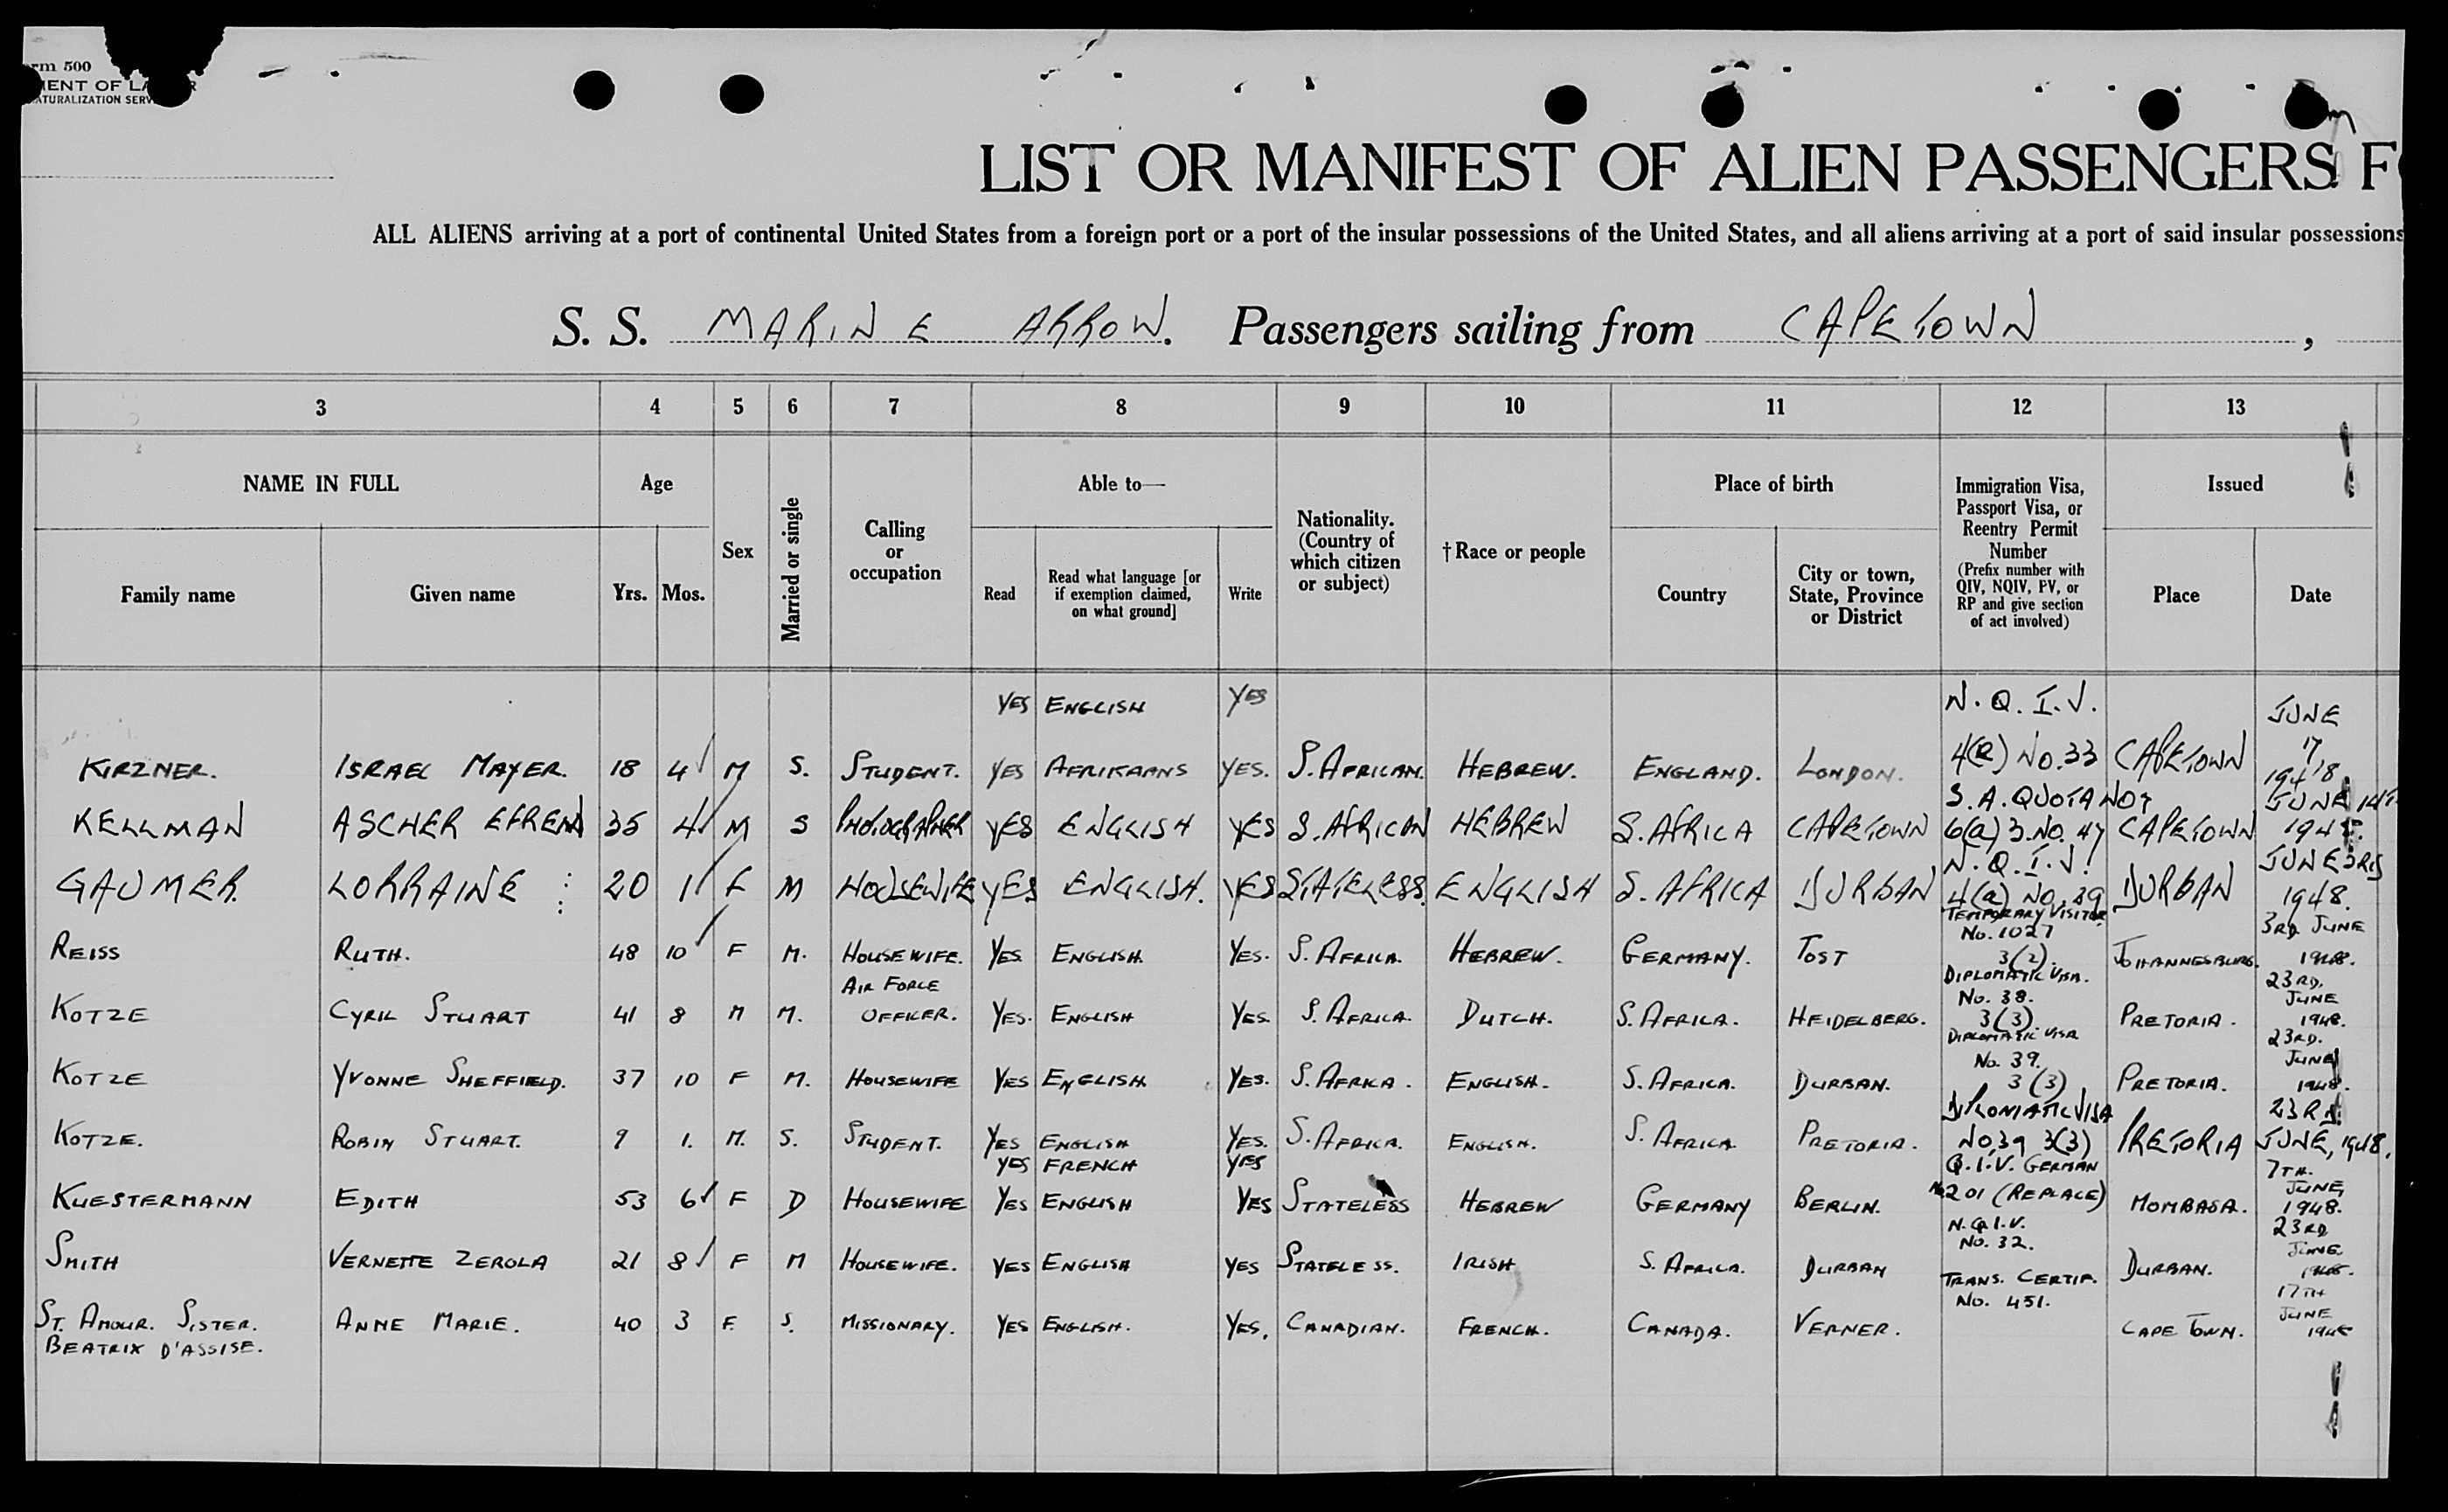 rm 500
MENT OF LA R
ATURALIZATION SERV
LIST OR MANIFEST OF ALIEN PASSENGERS F
ALL ALIENS arriving at a port of continental United States from a foreign port or a port of the insular possessions of the United States, and all aliens arriving at a port of said insular possessions
S. S. MARINE ARROW. Passengers sailing from CAPETOWN ,
3 4 5 6 7 8 9 10 11 12 13
NAME IN FULL Age Sex Married or single Calling or occupation Able to— Nationality. (Country of which citizen or subject) †Race or people Place of birth Immigration Visa, Passport Visa, or Reentry Permit Number (Prefix number with QIV, NQIV, PV, or RP and give section of act involved) Issued
Family name Given name Yrs. Mos. Read Read what language [or if exemption claimed, on what ground] Write Country City or town, State, Province or District Place Date
YES ENGLISH YES N.Q.I.V. JUNE
KIRZNER. ISRAEL MAYER. 18 4 M S. STUDENT. YES AFRIKAANS YES. S. AFRICAN. HEBREW. ENGLAND. LONDON. 4(a) NO. 33 CAPETOWN 17 1948
S.A. QUOTA NO JUNE
KELLMAN ASCHER EFREM 35 4 M S PHOTOGRAPHER YES ENGLISH YES S. AFRICAN HEBREW S. AFRICA CAPETOWN 6(a) 3. NO. 47 CAPETOWN 194
N.Q.I.V. JUNE 3RD
GAUMER. LORRAINE 20 1 F M HOUSEWIFE YES ENGLISH. YES STATELESS. ENGLISH S. AFRICA DURBAN 4(a) NO. 39 DURBAN 1948.
TEMPORARY VISITOR No. 1027 3RD JUNE
REISS RUTH. 48 10 F M. HOUSEWIFE. YES ENGLISH. YES. S. AFRICA. HEBREW. GERMANY. TOST 3(2). JOHANNESBURG. 1948.
AIR FORCE DIPLOMATIC VISA. No. 38. 23RD. JUNE
KOTZE CYRIL STUART 41 8 M M. OFFICER. YES. ENGLISH YES. S. AFRICA. DUTCH. S. AFRICA. HEIDELBERG. 3(3). PRETORIA. 1948.
DIPLOMATIC VISA No. 39. 23RD. JUNE
KOTZE YVONNE SHEFFIELD. 37 10 F M. HOUSEWIFE YES ENGLISH YES. S. AFRICA. ENGLISH. S. AFRICA. DURBAN. 3(3) PRETORIA. 1948.
DIPLOMATIC VISA 23RD.
KOTZE. ROBIN STUART. 9 1. M. S. STUDENT. YES ENGLISH YES. S. AFRICA. ENGLISH. S. AFRICA PRETORIA. NO. 39 3(3) PRETORIA JUNE, 1948.
YES FRENCH YES Q.I.V. GERMAN 7TH. JUNE,
KUESTERMANN EDITH 53 6 F D HOUSEWIFE YES ENGLISH YES STATELESS HEBREW GERMANY BERLIN. No 201 (REPLACE) MOMBASA. 1948.
N.Q.I.V. No. 32. 23RD JUNE.
SMITH VERNETTE ZEROLA 21 8 F M HOUSEWIFE. YES ENGLISH YES STATELESS. IRISH S. AFRICA. DURBAN DURBAN. 1948.
TRANS. CERTIF. No. 451. 17TH JUNE
ST. AMOUR. SISTER. ANNE MARIE. 40 3 F. S. MISSIONARY. YES ENGLISH. YES. CANADIAN. FRENCH. CANADA. VERNER. CAPE TOWN. 1948
BEATRIX D'ASSISE.